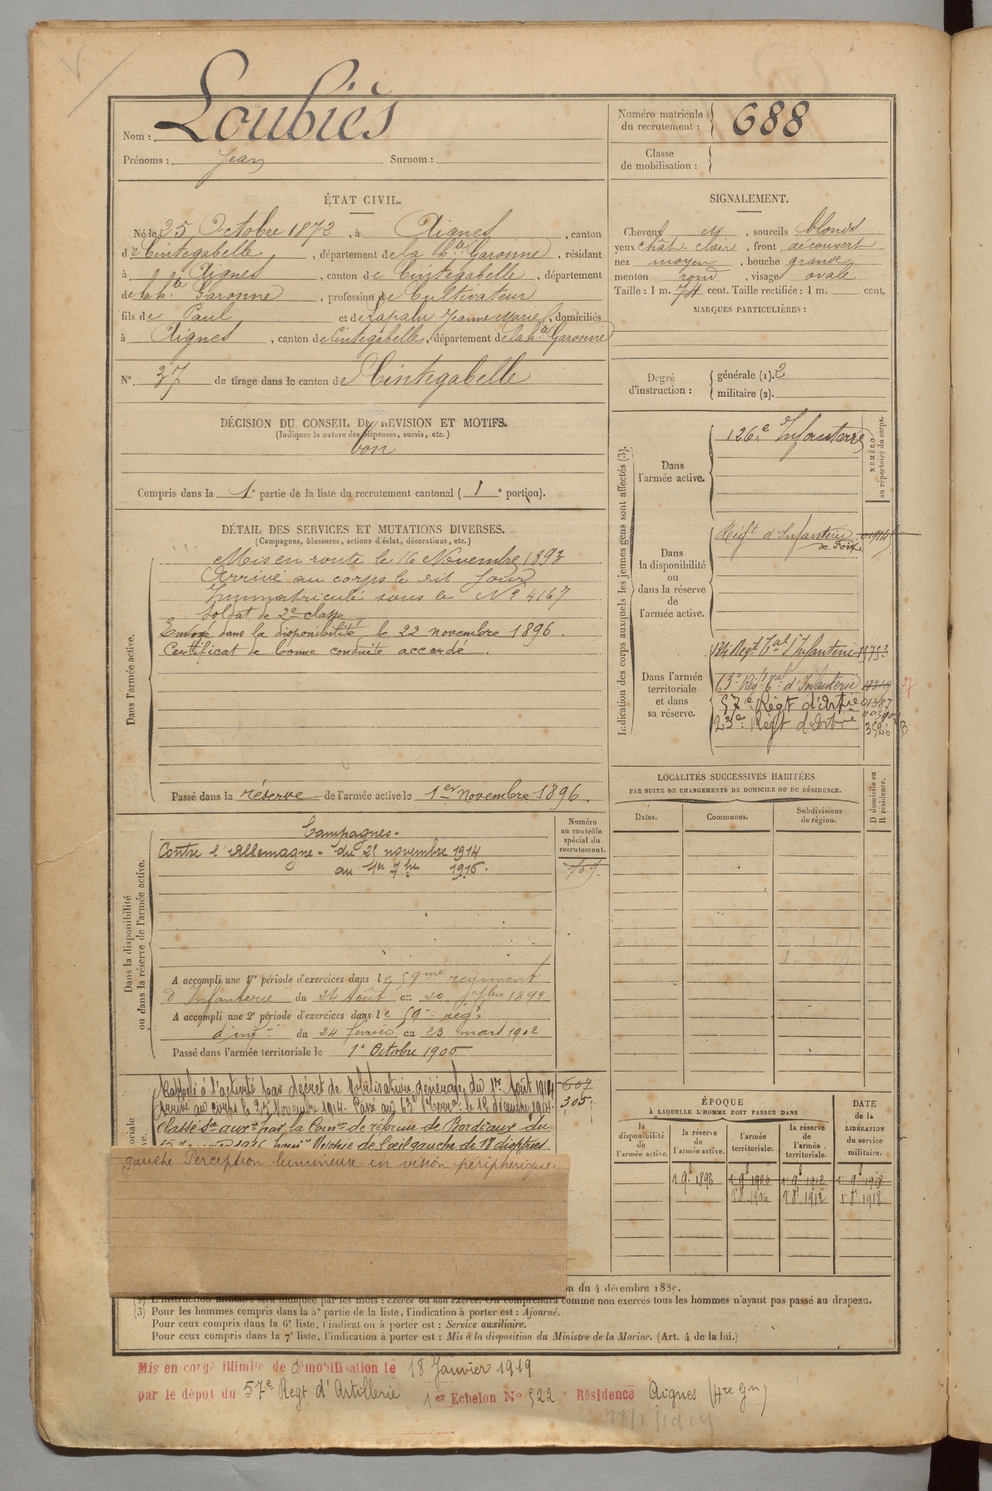 Nom : Loubiès
Prénoms : Jean Surnom :
Numéro matricule du recrutement : 688
Classe de mobilisation :
ÉTAT CIVIL.
Né le 25 Octobre 1872, à Aignes, canton
de Cintegabelle, département de la hte Garonne, résidant
à Aignes, canton de Cintegabelle, département
de la hte Garonne, profession de Cultivateur
fils de Paul et de Lapalu Jeanne Marie, domiciliés
à Aignes, canton de Cintegabelle, département de la hte Garonne
N° 37 de tirage dans le canton de Cintegabelle
SIGNALEMENT.
Cheveux et, sourcils blonds
yeux chât. clair, front découvert
nez moyen, bouche grande
menton rond, visage ovale
Taille : 1 m. 74 cent. Taille rectifiée : 1 m. cent.
MARQUES PARTICULIÈRES :
Degré d'instruction : générale (1). 2
militaire (2).
DÉCISION DU CONSEIL DE REVISION ET MOTIFS.
(Indiquer la nature des dispenses, sursis, etc.)
bon
Compris dans la 1e partie de la liste du recrutement cantonal (1e portion).
DÉTAIL DES SERVICES ET MUTATIONS DIVERSES.
(Campagnes, blessures, actions d'éclat, décorations, etc.)
Dans l'armée active.
Mis en route le 16 Novembre 1893
Arrivé au corps le dit Jour
Immatriculé sous le N° 4167
Soldat de 2e classe
Envoyé dans la disponibilité le 22 novembre 1896.
Certificat de bonne conduite accordé.
Passé dans la réserve de l'armée active le 1er Novembre 1896.
Indication des corps auxquels les jeunes gens sont affectés (3).
NUMÉRO au répertoire du corps.
Dans l'armée active.
126e Infanterie
Dans la disponibilité ou dans la réserve de l'armée active.
Régt d'Infanterie de Foix
Dans l'armée territoriale et dans sa réserve.
134 Régt Tal d'Infanterie
63e Régt Tal d'Infanterie
57e Régt d'Artie
23e Régt d'Artie
LOCALITÉS SUCCESSIVES HABITÉES
PAR SUITE DE CHANGEMENTS DE DOMICILE OU DE RÉSIDENCE.
D domicile ou R résidence.
Dates. Communes. Subdivisions de région.
Dans la disponibilité ou dans la réserve de l'armée active.
Numéro au contrôle spécial du recrutement.
Campagnes.
Contre l'Allemagne - du 25 novembre 1914
au 1er 7bre 1916.
A accompli une 1re période d'exercices dans le 59me régiment
d'Infanterie du 24 Août au 20 7bre 1899
A accompli une 2e période d'exercices dans le 59e régt
d'inf. du 24 février au 23 mars 1902
Passé dans l'armée territoriale le 1er Octobre 1906
Rappelé à l'activité par décret de Mobilisation générale du 1er Août 1914
Arrivé au corps le 25 Novembre 1914. Passé au 63e Terral le 12 décembre 1914.
305
Classé Sce auxre par la Comon de réforme de Bordeaux du
Myopie de l'œil gauche de 18 dioptries.
gauche Perception lumineuse en vision périphérique.
ÉPOQUE
À LAQUELLE L'HOMME DOIT PASSER DANS
la disponibilité de l'armée active. la réserve de l'armée active. l'armée territoriale. la réserve de l'armée territoriale.
DATE de la LIBÉRATION du service militaire.
1 9e 1896 1 9e 1906 1 9e 1912 1 9e 1918
1 8e 1906 1 8e 1912 1 8e 1918
du 4 décembre 188
(3) Pour les hommes compris dans la 5e partie de la liste, l'indication à porter est : Ajourné.
Pour ceux compris dans la 6e liste, l'indication à porter est : Service auxiliaire.
Pour ceux compris dans la 7e liste, l'indication à porter est : Mis à la disposition du Ministre de la Marine. (Art. 4 de la loi.)
Mis en congé illimité de démobilisation le 18 Janvier 1919
par le dépôt du 57e Régt d'Artillerie 1er Echelon N° 522 Résidence Aignes (Hte Gne)